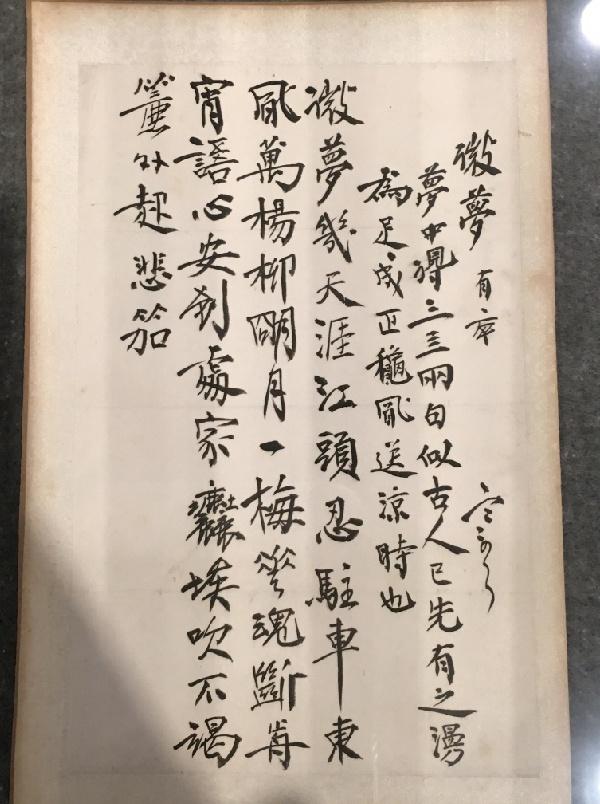 微夢 有
夢中得三三兩句似古人已先有之漫
為足成正穐風送涼時也
微夢幾天涯江頭忍駐車東
風萬楊柳明月一梅花魂斷歬
宵語心安到處家塵埃吹不竭
簾外起悲笳